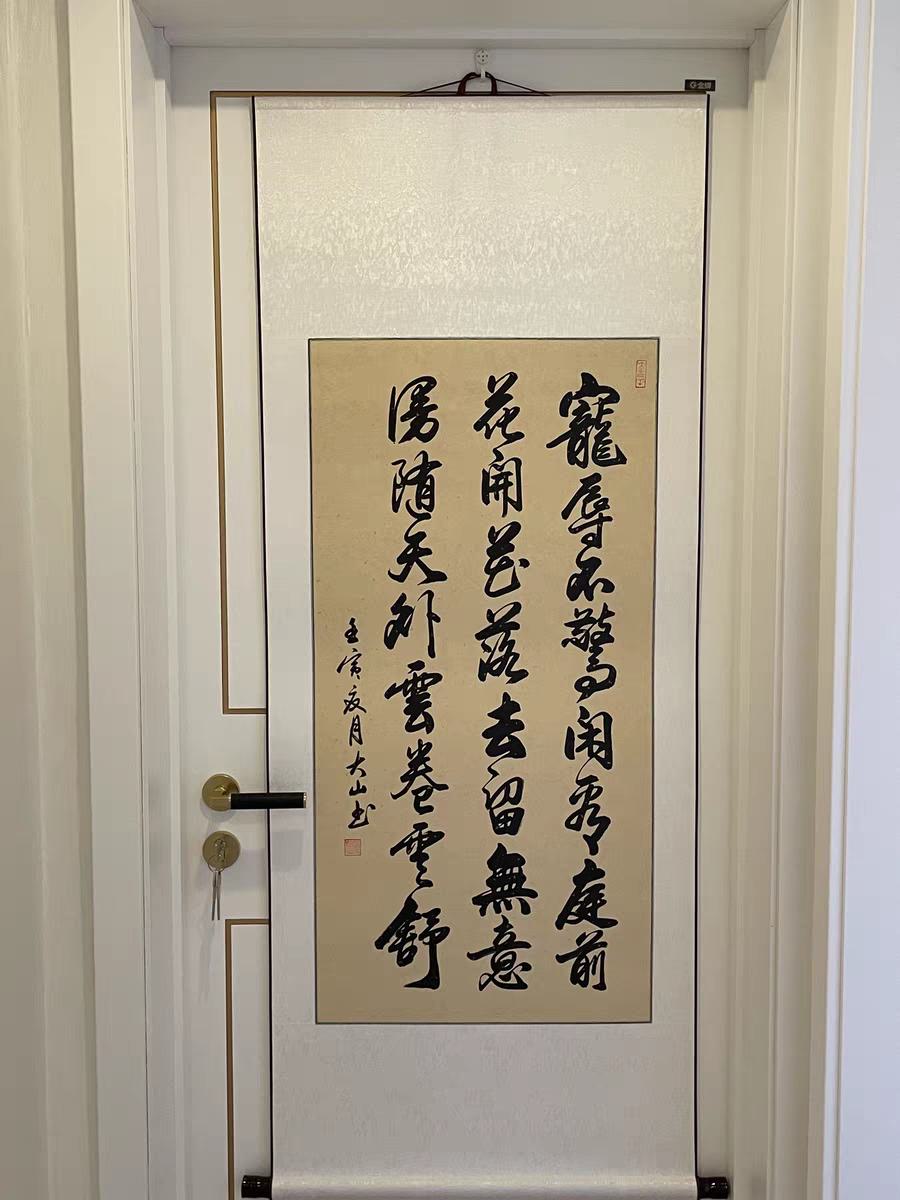 寵辱不驚閑看庭前
花開花落去留無意
漫随天外雲卷雲舒
壬寅夏月大山书
金牌